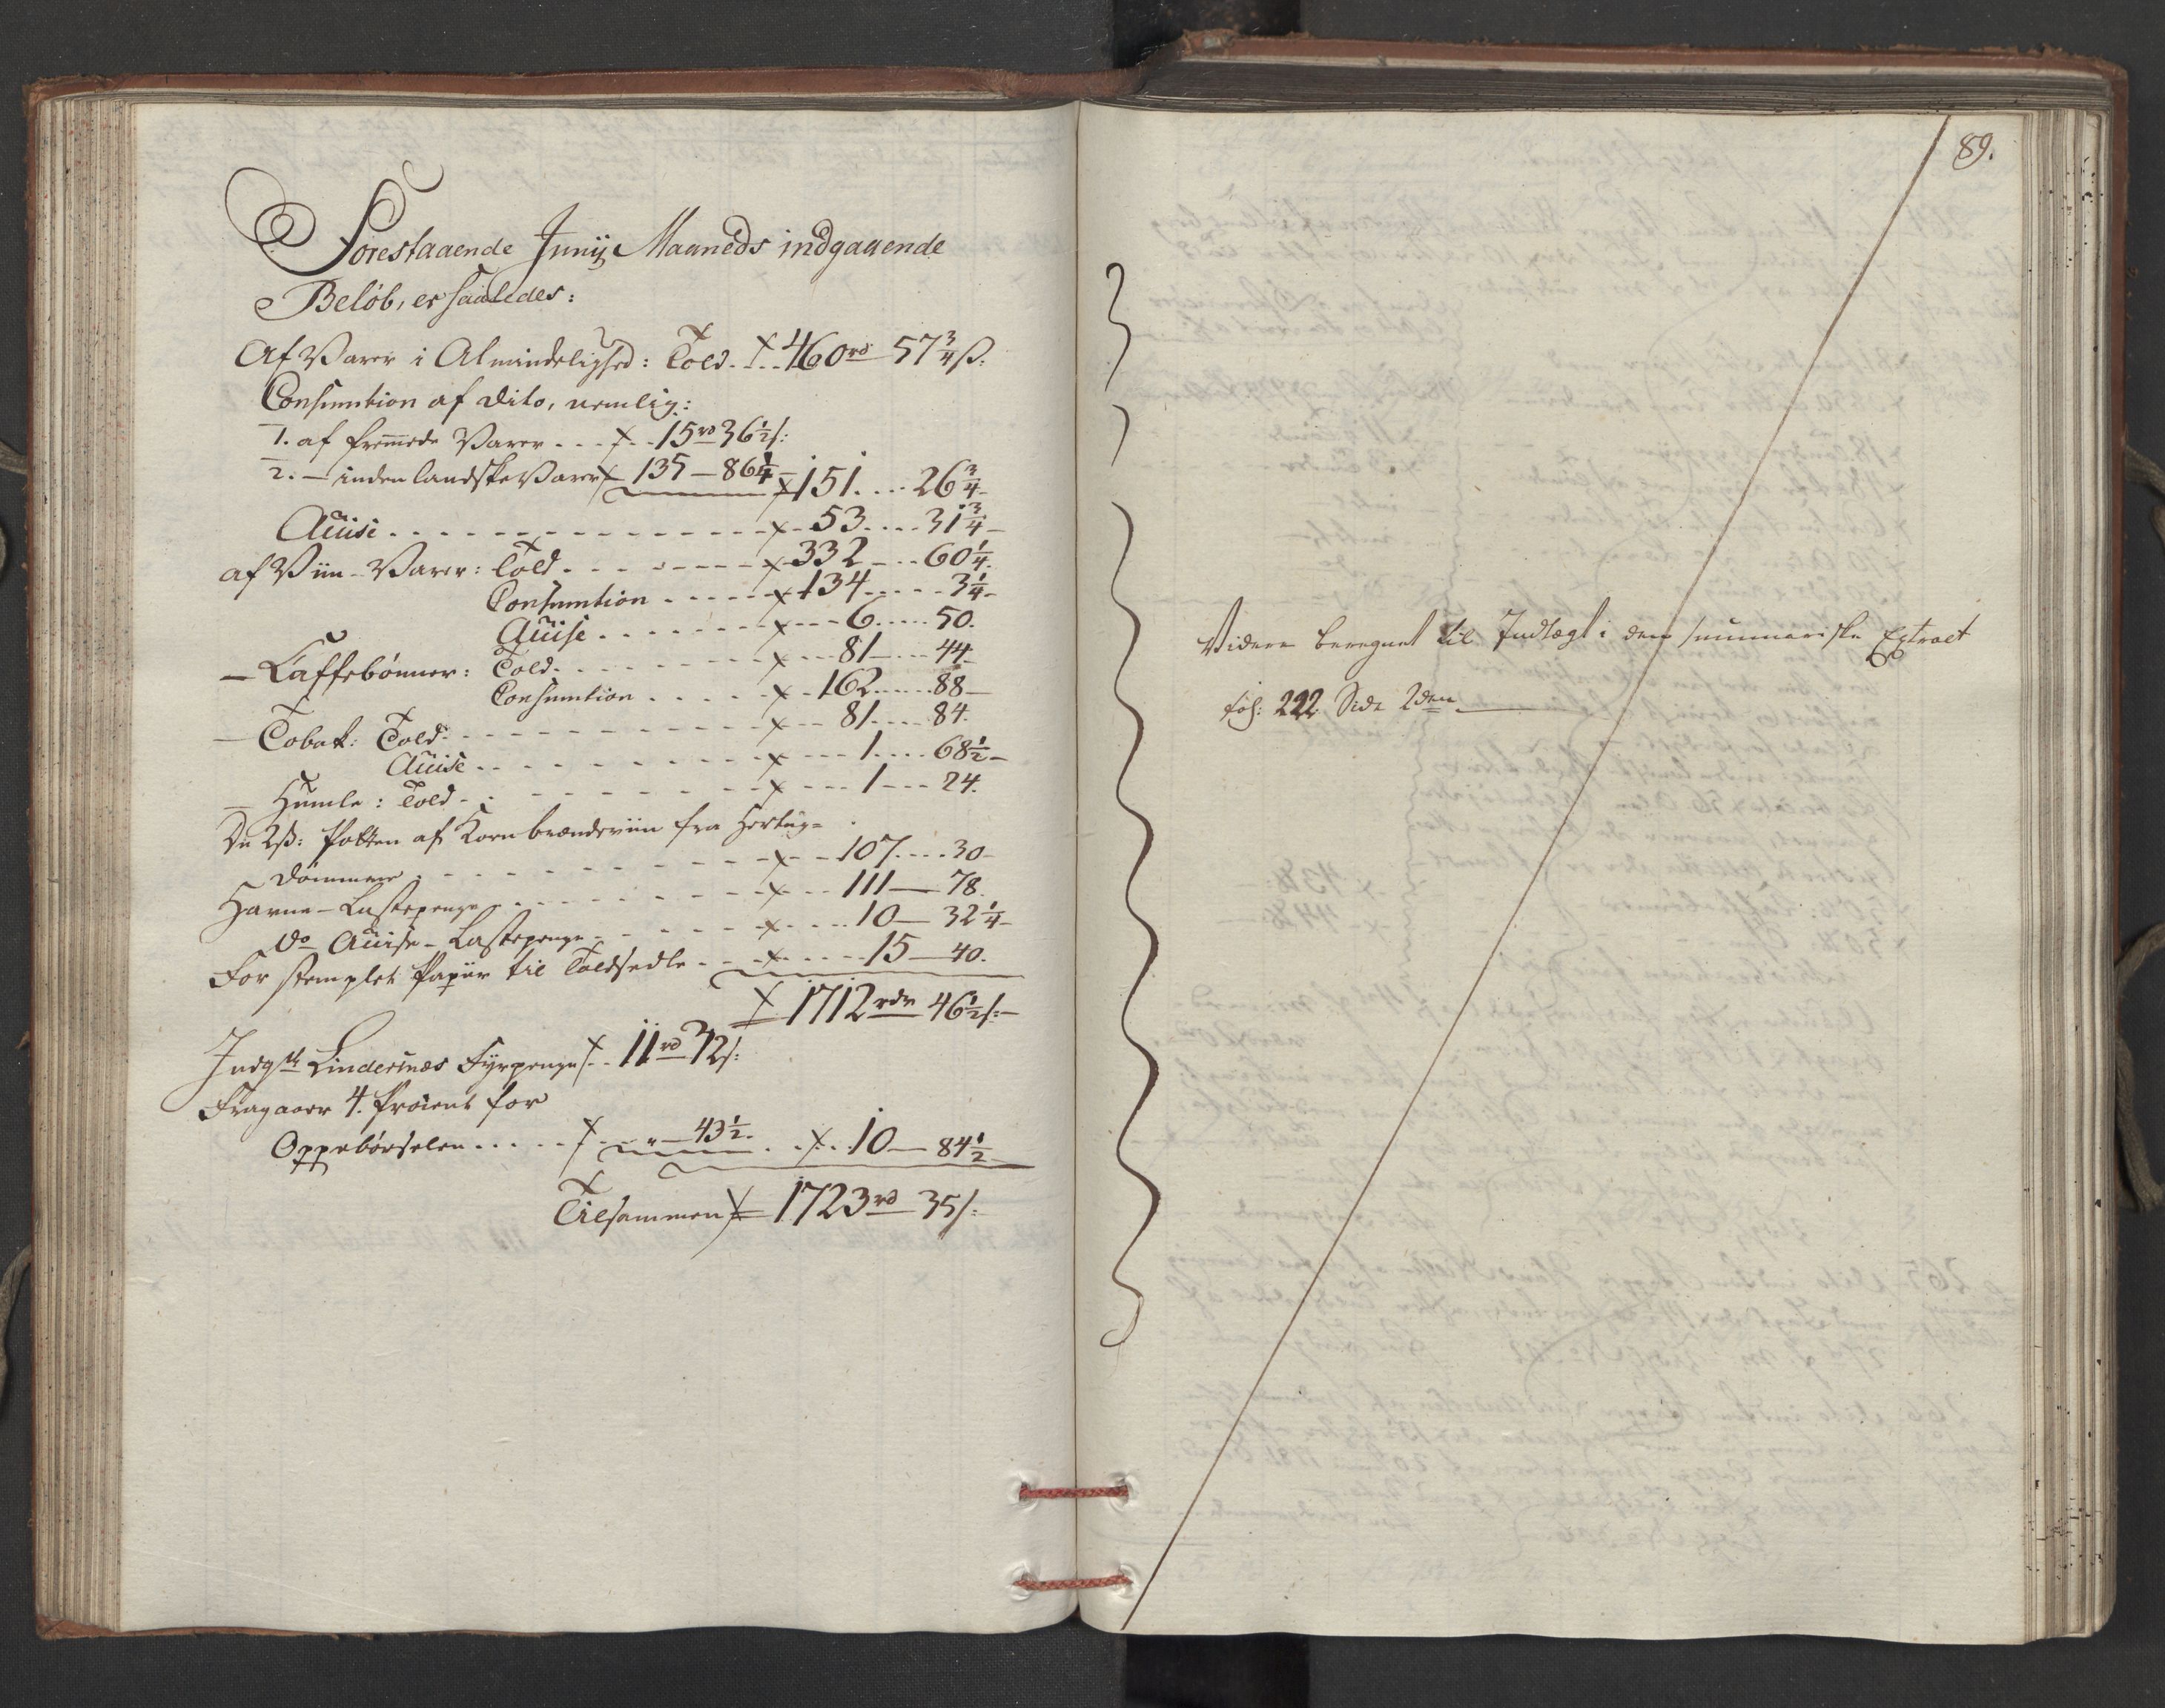 Forestaaende Junij Maaneds indgaaende
Beløb, er saaledes:
Af Varer i Almindelighed: Told. . . . 460 rd 57 3/4 ß:
Consumtion af dito, nemlig:
1. af fremmede Varer . . . . 15 rd 36 1/2 ß:
2. — indenlandske Varer 135 — 86 1/4 151. . . . 26 3/4
Accise . . . . . . 53 . . . . 31 3/4
af Viin-Varer: Told . . . . . . 332 . . . 60 1/4
Consumtion . . . . . 134 . . . . . 3 1/4
Accise . . . . . . 6 . . . . . 50.
— Caffebønner: Told . . . . . . 81 . . . . 44
Consumtion . . . . . 162 . . . . . 88
— Tobak: Told . . . . . . 81 . . . . 84.
Accise . . . . . . 1 . . . . 68 1/2
— Humle: Told . . . . . . 1 . . . 24.
De 2 ß: Potten af Kornbrændeviin fra Hertug=
dømmene . . . . . . 107 . . . . 30
Havne-Lastepenge . . . . . . 111 — 78.
do Accise-Lastepenge . . . . . . 10 — 32 1/4
For stemplet Papiir til Toldsedle . . . . . . 15 — 40.
1712 rdr 46 1/2 ß:
Indg. Lindesnæs Fyrpenge . . 11 rd 32 ß:
Fragaaer 4. Procent for
Oppebørselen . . . . . " — 43 1/2 . . . . 10 — 84 1/2
Tilsammen 1723 rd 35 ß:
89.
Videre beregnet til Indtægt i den summariske Extract
fol: 222 Side 2den